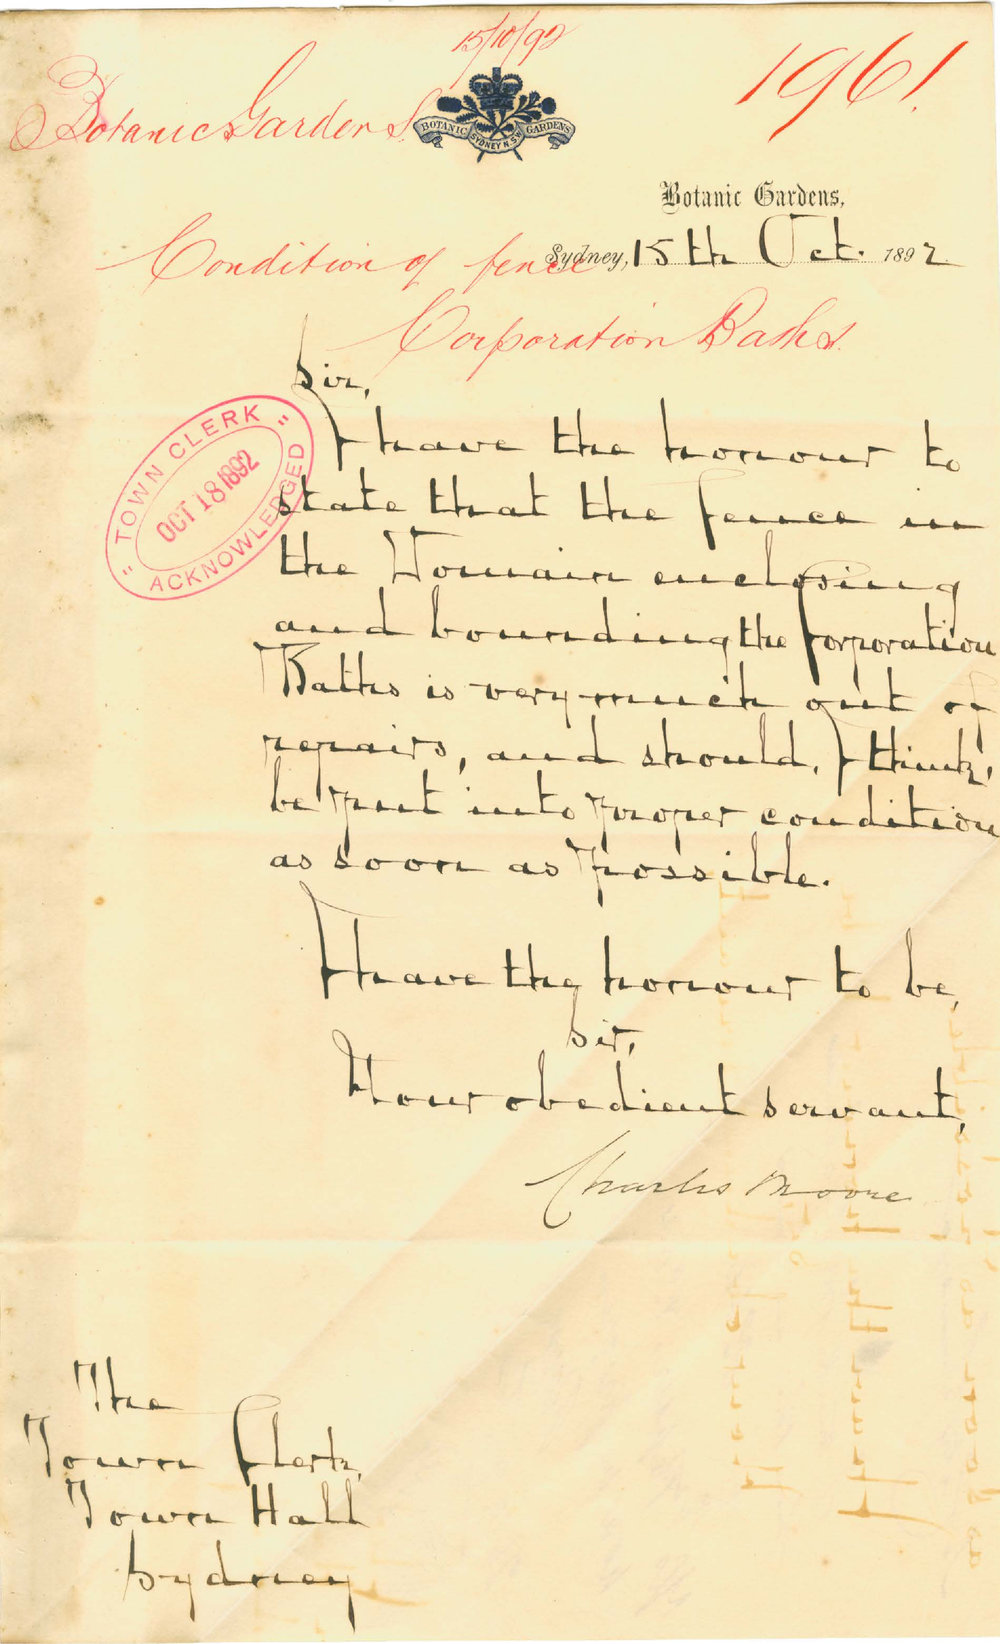 15/10/92
1961.
Botanic Gardens.
BOTANIC GARDENS
SYDNEY N.S.W.
Botanic Gardens,
Sydney, 15th Oct. 1892
Condition of fence
Corporation Baths.
Sir,
I have the honour to
state that the fence in
the Domain enclosing
and bounding the Corporation
Baths is very much out of
repairs, and should, I think,
be put into proper condition
as soon as possible.
TOWN CLERK
OCT 18 1892
ACKNOWLEDGED
I have the honour to be,
Sir,
Your obedient servant,
Charles Moore
The
Town Clerk,
Town Hall
Sydney